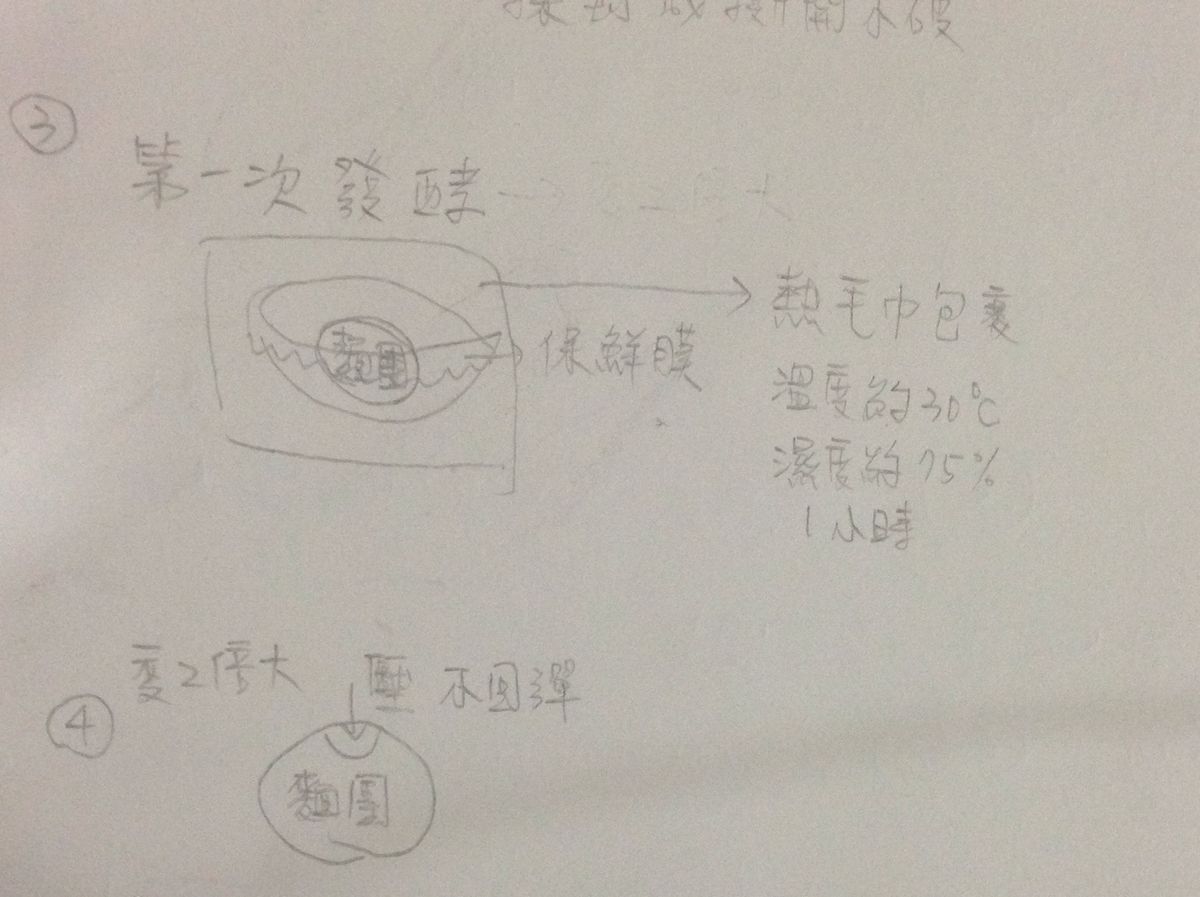 ③
第一次發酵
麵團
保鮮膜
熱毛巾包裹
溫度約30℃
濕度約75%
1小時
④
變2倍大
壓 不回彈
麵團